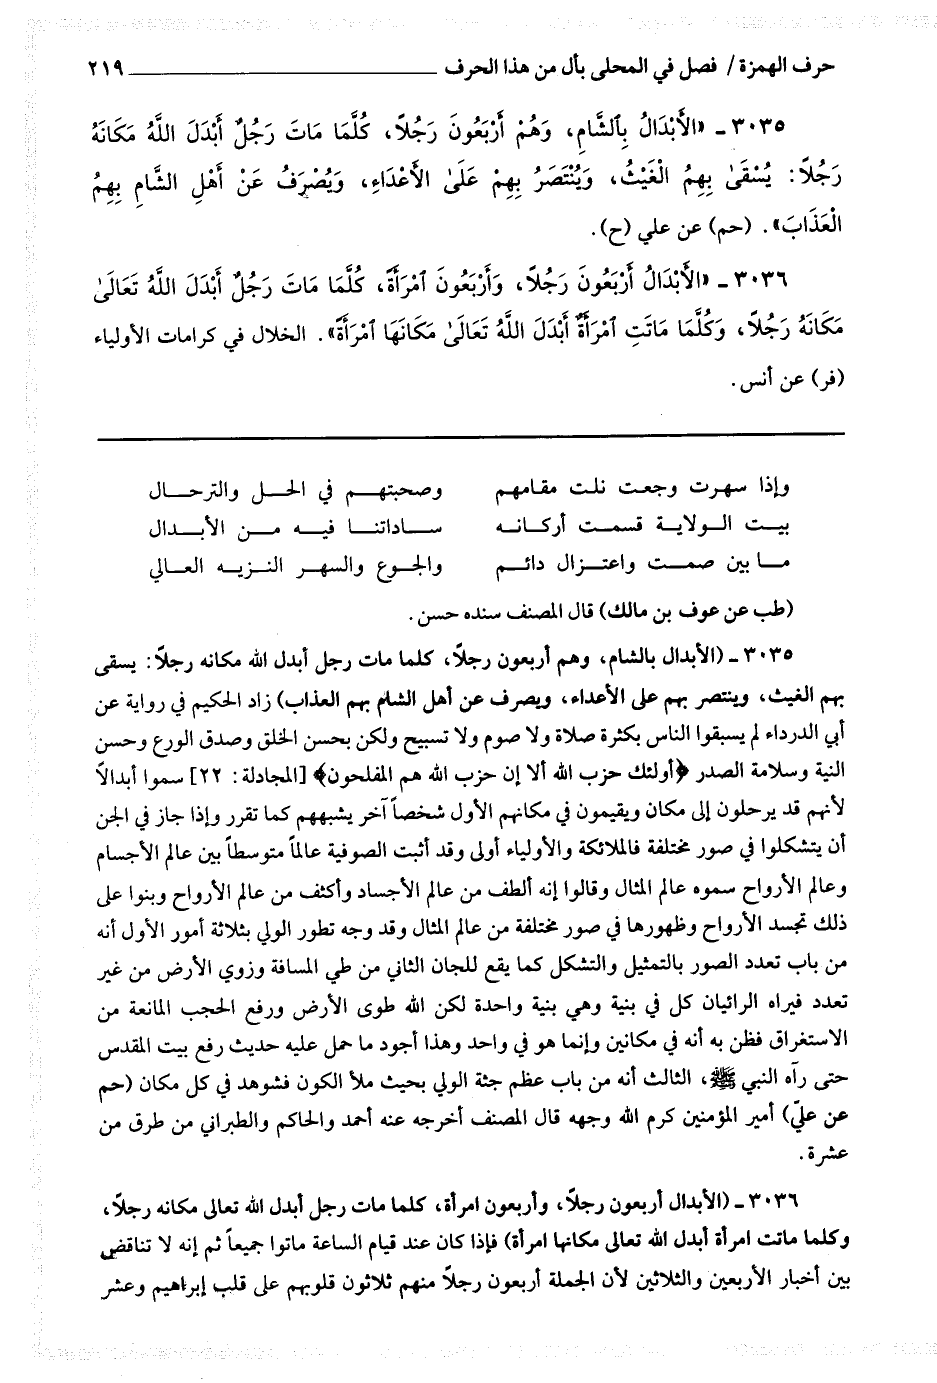 حرف الهمزة / فصل في المحلى بأل من هذا الحرف ــــــــــــــــــــ ٢١٩
٣٠٣٥ ـ «الأَبْدَالُ بِٱلشَّامِ، وَهُمْ أَرْبَعُونَ رَجُلاً، كُلَّمَا مَاتَ رَجُلٌ أَبْدَلَ اللَّهُ مَكَانَهُ
رَجُلاً: يُسْقَىٰ بِهِمُ الْغَيْثُ، وَيُنْتَصَرُ بِهِمْ عَلَىٰ الأَعْدَاءِ، وَيُصْرَفُ عَنْ أَهْلِ الشَّامِ بِهِمُ
الْعَذَابَ». (حم) عن علي (ح).
٣٠٣٦ ـ «الأَبْدَالُ أَرْبَعُونَ رَجُلاً، وَأَرْبَعُونَ ٱمْرَأَةً، كُلَّمَا مَاتَ رَجُلٌ أَبْدَلَ اللَّهُ تَعَالَىٰ
مَكَانَهُ رَجُلاً، وَكُلَّمَا مَاتَتِ ٱمْرَأَةٌ أَبْدَلَ اللَّهُ تَعَالَىٰ مَكَانَهَا ٱمْرَأَةً». الخلال في كرامات الأولياء
(فر) عن أنس.
وإذا سهرت وجعت نلت مقامهم وصحبتهـم في الحـل والترحـال
بيـت الـولايـة قسمـت أركـانـه سـاداتنـا فيـه مـن الأبـدال
مـا بين صمـت واعتـزال دائـم والجـوع والسهر النـزيـه العـالي
(طب عن عوف بن مالك) قال المصنف سنده حسن.
٣٠٣٥ ـ (الأبدال بالشام، وهم أربعون رجلاً، كلما مات رجل أبدل الله مكانه رجلاً: يسقى
بهم الغيث، وينتصر بهم على الأعداء، ويصرف عن أهل الشام بهم العذاب) زاد الحكيم في رواية عن
أبي الدرداء لم يسبقوا الناس بكثرة صلاة ولا صوم ولا تسبيح ولكن بحسن الخلق وصدق الورع وحسن
النية وسلامة الصدر ﴿أولئك حزب الله ألا إن حزب الله هم المفلحون﴾ [المجادلة: ٢٢] سموا أبدالاً
لأنهم قد يرحلون إلى مكان ويقيمون في مكانهم الأول شخصاً آخر يشبههم كما تقرر وإذا جاز في الجن
أن يتشكلوا في صور مختلفة فالملائكة والأولياء أولى وقد أثبت الصوفية عالماً متوسطاً بين عالم الأجسام
وعالم الأرواح سموه عالم المثال وقالوا إنه ألطف من عالم الأجساد وأكثف من عالم الأرواح وبنوا على
ذلك تجسد الأرواح وظهورها في صور مختلفة من عالم المثال وقد وجه تطور الولي بثلاثة أمور الأول أنه
من باب تعدد الصور بالتمثيل والتشكل كما يقع للجان الثاني من طي المسافة وزوي الأرض من غير
تعدد فيراه الرائيان كل في بنية وهي بنية واحدة لكن الله طوى الأرض ورفع الحجب المانعة من
الاستغراق فظن به أنه في مكانين وإنما هو في واحد وهذا أجود ما حمل عليه حديث رفع بيت المقدس
حتى رآه النبي ﷺ، الثالث أنه من باب عظم جثة الولي بحيث ملأ الكون فشوهد في كل مكان (حم
عن عليّ) أمير المؤمنين كرم الله وجهه قال المصنف أخرجه عنه أحمد والحاكم والطبراني من طرق من
عشرة.
٣٠٣٦ ـ (الأبدال أربعون رجلاً، وأربعون امرأة، كلما مات رجل أبدل الله تعالى مكانه رجلاً،
وكلما ماتت امرأة أبدل الله تعالى مكانها امرأة) فإذا كان عند قيام الساعة ماتوا جميعاً ثم إنه لا تناقض
بين أخبار الأربعين والثلاثين لأن الجملة أربعون رجلاً منهم ثلاثون قلوبهم على قلب إبراهيم وعشر